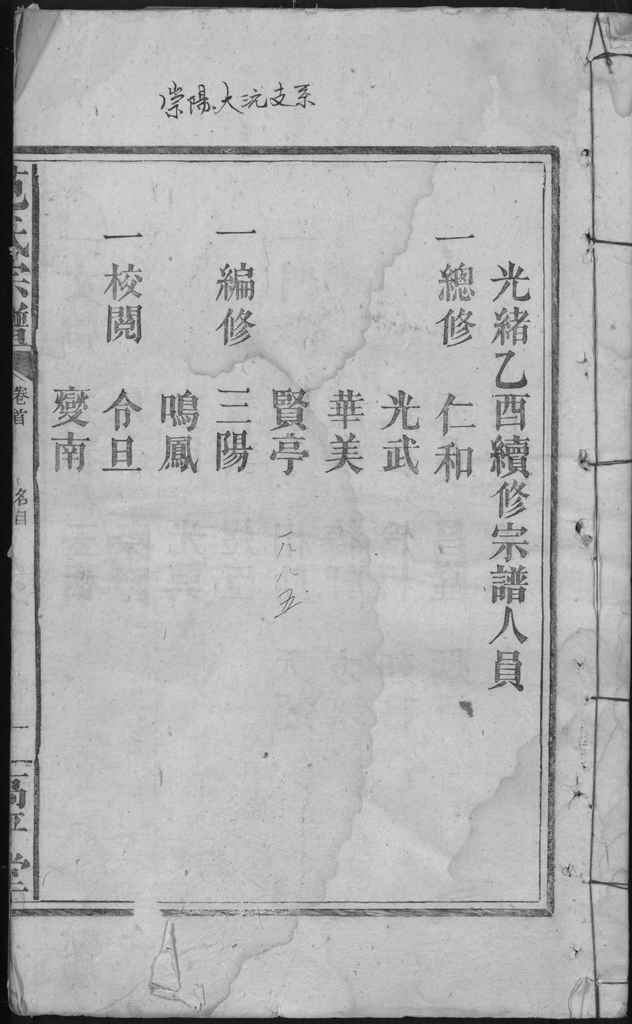 崇陽大沅支系
光緒乙酉續修宗譜人員
一總修 仁和
光武
華美
賢亭
一八八五
一編修 三陽
鳴鳳
一校閱 令旦
燮南
范氏宗譜
卷首 名目
二 高平堂